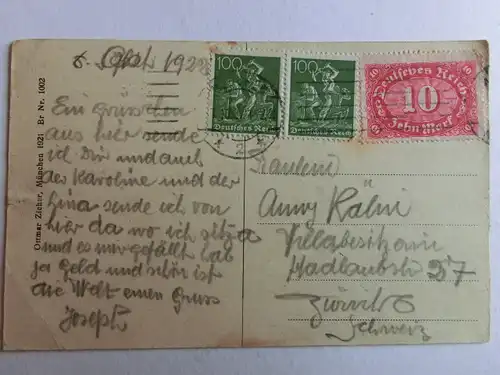 8. Sept. 1922
Ein Grüsschen
aus hier sende
ich Dir und auch
der Karoline und der
Lina sende ich von
hier da wo ich sitze
und es mir gefällt hab
ja Geld und schön ist
die Welt einen Gruss
Joseph
Ottmar Zieher, München 1921 Br Nr. 1002
100
Deutsches Reich
100
Deutsches Reich
Deutsches Reich
10
10
10
Zehn Mark
2
Fräulein
Anny
Villabesitzerin
Hadlaubstr 57
Zürich
Schweiz